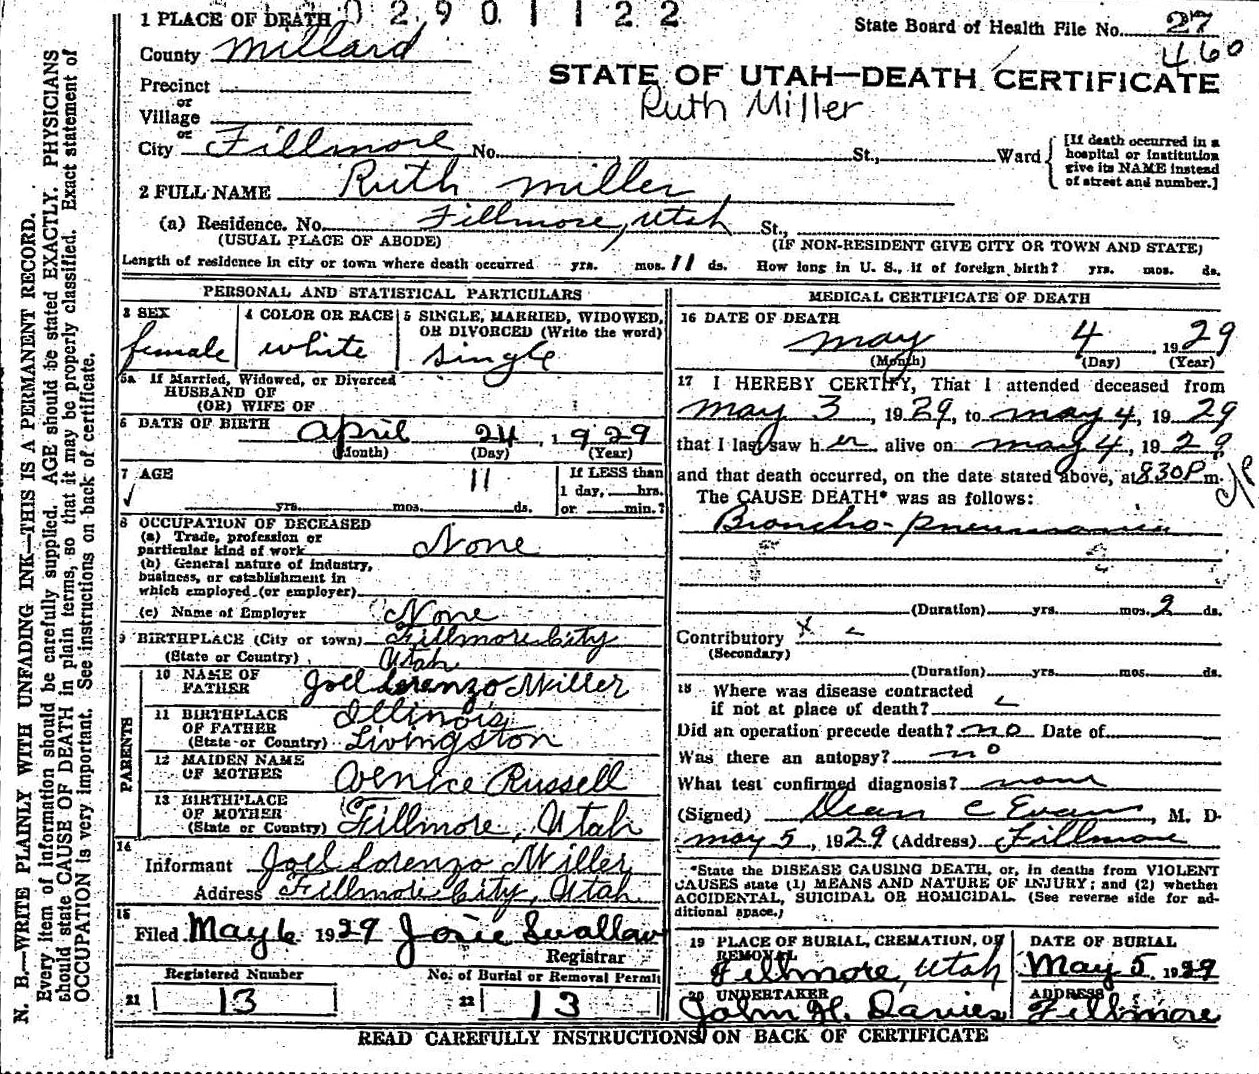 0 2 9 0 1 1 2 2
1 PLACE OF DEATH
State Board of Health File No. 27
460
County Millard
STATE OF UTAH—DEATH CERTIFICATE
Precinct
or
Ruth Miller
Village
or
City Fillmore No. St., Ward
[If death occurred in a hospital or institution give its NAME instead of street and number.]
2 FULL NAME Ruth Miller
(a) Residence. No. Fillmore, Utah St.,
(USUAL PLACE OF ABODE) (IF NON-RESIDENT GIVE CITY OR TOWN AND STATE)
Length of residence in city or town where death occurred yrs. mos. 11 ds. How long in U. S., if of foreign birth? yrs. mos. ds.
PERSONAL AND STATISTICAL PARTICULARS
3 SEX
female
4 COLOR OR RACE
white
5 SINGLE, MARRIED, WIDOWED,
OR DIVORCED (Write the word)
single
5a If Married, Widowed, or Divorced
HUSBAND OF
(OR) WIFE OF
6 DATE OF BIRTH April 24, 1929
(Month) (Day) (Year)
7 AGE 11
yrs. mos. ds.
If LESS than
1 day, hrs.
or min.?
8 OCCUPATION OF DECEASED
(a) Trade, profession or
particular kind of work None
(b) General nature of industry,
business, or establishment in
which employed (or employer)
(c) Name of Employer None
9 BIRTHPLACE (City or town) Fillmore City
(State or Country) Utah
PARENTS
10 NAME OF
FATHER Joel Lorenzo Miller
11 BIRTHPLACE
OF FATHER Illinois
(State or Country) Livingston
12 MAIDEN NAME
OF MOTHER Venice Russell
13 BIRTHPLACE
OF MOTHER
(State or Country) Fillmore, Utah
14
Informant Joel Lorenzo Miller
Address Fillmore City, Utah
15
Filed May 6 1929 Josie Swallow
Registrar
Registered Number
21 13
No. of Burial or Removal Permit
22 13
MEDICAL CERTIFICATE OF DEATH
16 DATE OF DEATH
May 4, 1929
(Month) (Day) (Year)
17 I HEREBY CERTIFY, That I attended deceased from
May 3, 1929, to May 4, 1929
that I last saw her alive on May 4, 1929
and that death occurred, on the date stated above, at 830P m.
The CAUSE DEATH* was as follows:
Broncho-pneumonia
(Duration) yrs. mos. 2 ds.
Contributory x
(Secondary)
(Duration) yrs. mos. ds.
18 Where was disease contracted
if not at place of death?
Did an operation precede death? no Date of
Was there an autopsy? no
What test confirmed diagnosis? none
(Signed) Dean C Evans, M. D.
May 5, 1929 (Address) Fillmore
*State the DISEASE CAUSING DEATH, or, in deaths from VIOLENT
CAUSES state (1) MEANS AND NATURE OF INJURY; and (2) whether
ACCIDENTAL, SUICIDAL OR HOMICIDAL. (See reverse side for ad-
ditional space.)
19 PLACE OF BURIAL, CREMATION, OR
REMOVAL
Fillmore, Utah
DATE OF BURIAL
May 5, 1929
20 UNDERTAKER
John H. Davies
ADDRESS
Fillmore
READ CAREFULLY INSTRUCTIONS ON BACK OF CERTIFICATE
N. B.—WRITE PLAINLY WITH UNFADING INK—THIS IS A PERMANENT RECORD.
Every item of information should be carefully supplied. AGE should be stated EXACTLY. PHYSICIANS
should state CAUSE OF DEATH in plain terms, so that it may be properly classified. Exact statement of
OCCUPATION is very important. See instructions on back of certificate.